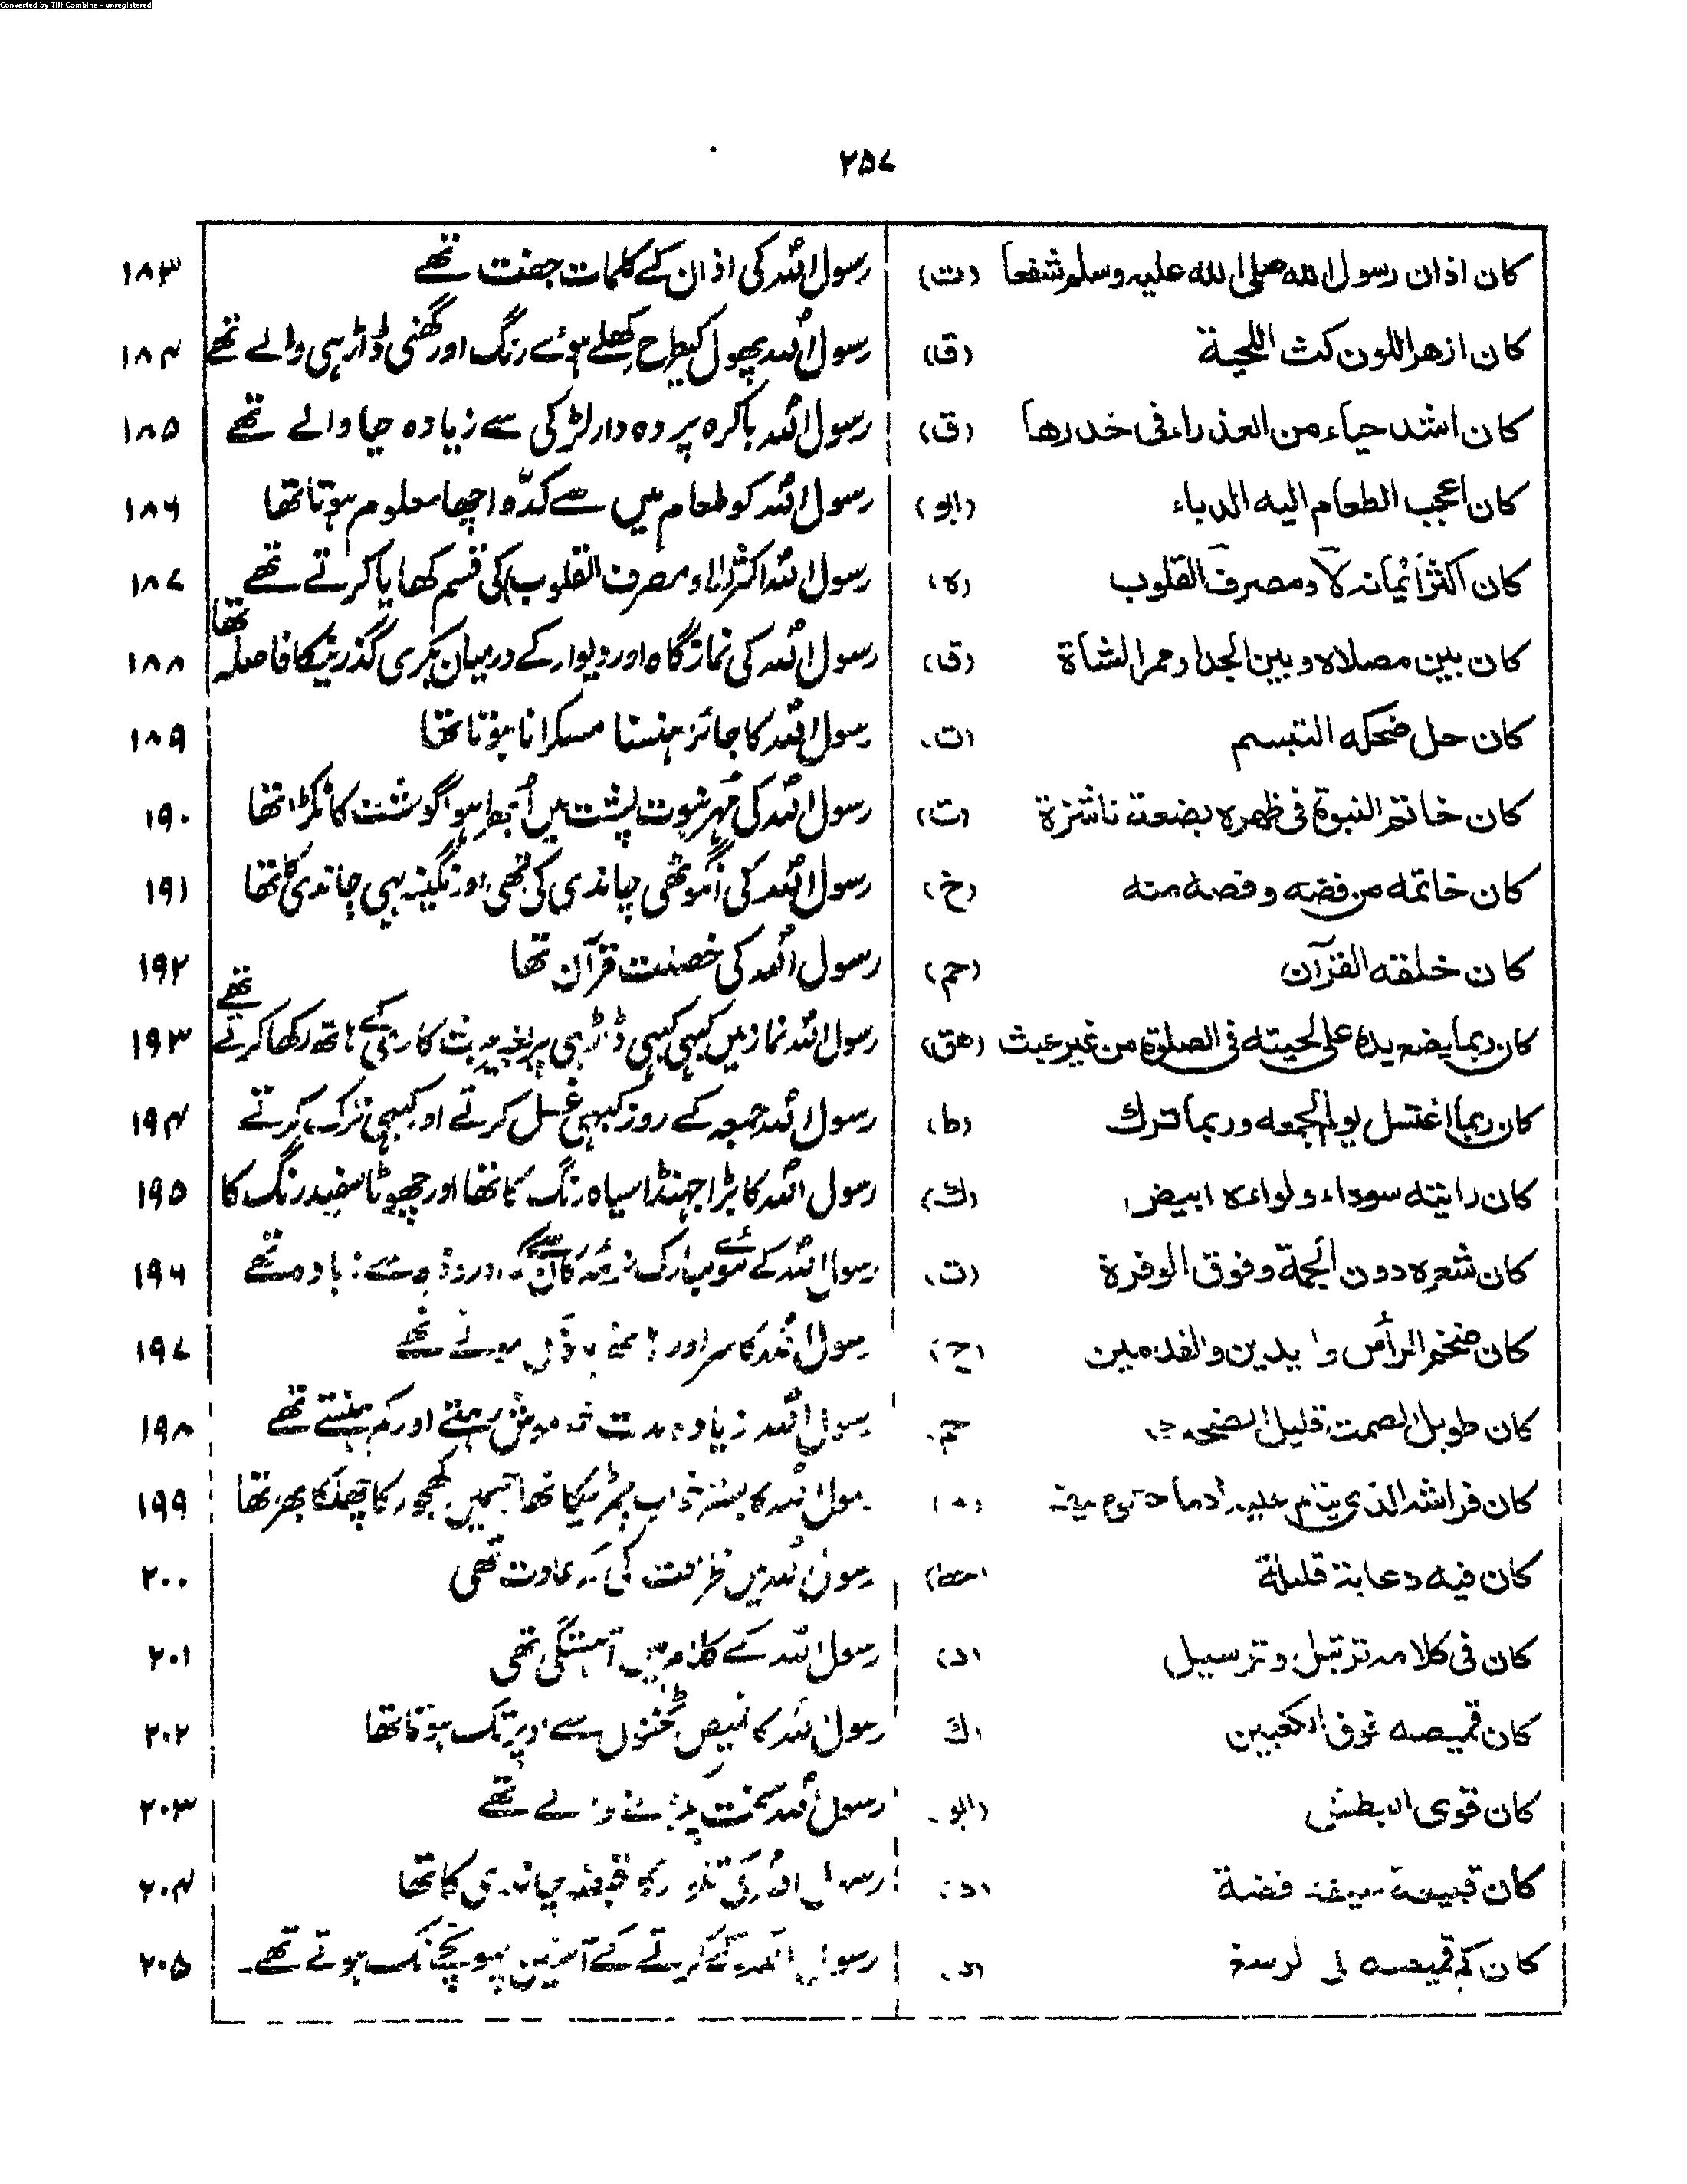 Converted by Tiff Combine - unregistered
۲۵۷
کان اذان رسول الله صلی الله علیہ وسلم شفعا (ت) رسول اللہ کی اذان کے کلمات جفت تھے ۱۸۳
کان ازھر اللون کث اللحیة (ق) رسول اللہ پھول کیطرح کھلے ہوئے رنگ اور گھنی ڈاڑہی والے تھے ۱۸۴
کان اشد حیاء من العذراء فی خدرھا (ق) رسول اللہ باکرہ پردہ دار لڑکی سے زیادہ حیا والے تھے ۱۸۵
کان اعجب الطعام الیه الدباء (ابو) رسول اللہ کو طعام میں سے کدّو اچھا معلوم ہوتا تھا ۱۸۶
کان اکثر اَیْمانہ لا ومصرف القلوب (ہ) رسول اللہ اکثر لا ومصرف القلوب کی قسم کھایا کرتے تھے ۱۸۷
کان بین مصلاہ وبین الجدار ممر الشاة (ق) رسول اللہ کی نماز گاہ اور دیوار کے درمیان بکری گذرنیکا فاصلہ تھا ۱۸۸
کان جل ضحکه التبسم (ت) رسول اللہ کا جائز ہنسنا مسکرانا ہوتا تھا ۱۸۹
کان خاتم النبوة فی ظھرہ بضعة ناشزة (ت) رسول اللہ کی مُہر نبوت پشت میں اُبھرا ہوا گوشت کا ٹکڑا تھا ۱۹۰
کان خاتمه من فضه وفصه منه (خ) رسول اللہ کی انگوٹھی چاندی کی تھی اور نگینہ بہی چاندی کا تھا ۱۹۱
کان خلقه القرآن (حم) رسول اللہ کی خصلت قرآن تھا ۱۹۲
کان ربما یضع یدہ علی لحیته فی الصلوة من غیر عبث (ھق) رسول اللہ نماز میں کبہی کبہی ڈاڑہی پر بغیر عبث کاری کے ہاتھ رکھا کرتے تھے ۱۹۳
کان ربما اغتسل یوم الجمعه وربما ترک (ط) رسول اللہ جمعہ کے روز کبہی غسل کرتے اور کبہی ترک کرتے ۱۹۴
کان رایته سوداء ولواءہ ابیض (ک) رسول اللہ کا بڑا جہنڈا سیاہ رنگ کا تھا اور چھوٹا سفید رنگ کا ۱۹۵
کان شعرہ دون الجمة وفوق الوفرة (ت) رسول اللہ کے موئے مبارک کان سے تھے ۱۹۶
کان ضخم الرأس والیدین والقدمین (خ) رسول اللہ کا سر اور پاؤں موٹے تھے ۱۹۷
کان طویل الصمت قلیل الضحک (حم) رسول اللہ زیادہ مدت خاموش رہتے اور کم ہنستے تھے ۱۹۸
کان فراشه الذی ینام علیہ رسول اللہ کا بستر خواب چمڑیکا تھا جسمیں کھجور کا چھلکا بھرا تھا ۱۹۹
کان فیه دعابة قلیلة (خط) رسول اللہ میں ظرافت کی کم عادت تھی ۲۰۰
کان فی کلامه ترتیل وترسیل (د) رسول اللہ کے کلام میں آہستگی تھی ۲۰۱
کان قمیصه فوق الکعبین (ک) رسول اللہ کا قمیص ٹخنوں سے اوپر تک ہوتا تھا ۲۰۲
کان قوی البطش (ابو) رسول اللہ سخت پکڑنے والے تھے ۲۰۳
کان قبیعة سیفہ فضة (د) رسول اللہ کی تلوار کا قبضہ چاندی کا تھا ۲۰۴
کان کم قمیصه الی الرسغ (د) رسول اللہ کے کرتے کے آستین پہونچے تک ہوتے تھے۔ ۲۰۵